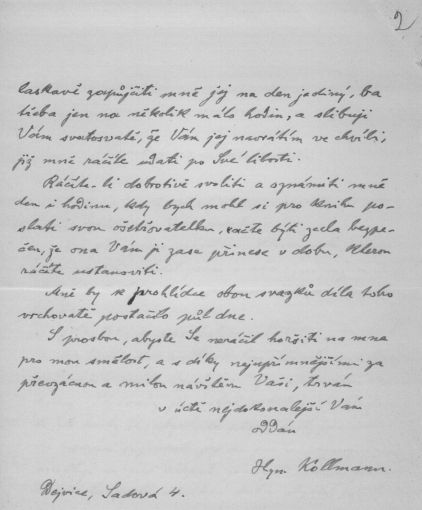 2
laskavě zapůjčiti mně jej na den jediný, ba
třeba jen na několik málo hodin, a slibuji
Vám svatosvatě, že Vám jej navrátím ve chvíli,
již mně ráčíte udati po Své libosti.
Ráčíte-li dobrotivě svoliti a oznámiti mně
den i hodinu, kdy bych mohl si pro knihu po-
slati svou ošetřovatelku, račte býti zcela bezpe-
čen, že ona Vám ji zase přinese v dobu, kterou
ráčíte ustanoviti.
Mně by k prohlídce obou svazků díla toho
vrchovatě postačilo půl dne.
S prosbou, abyste Se neráčil horšiti na mne
pro mou smělost, a s díky nejupřímnějšími za
převzácnou a milou návštěvu Vaši, trvám
v úctě nejdokonalejší Vám
oddán
Hyn. Kollmann.
Dejvice, Sadová 4.